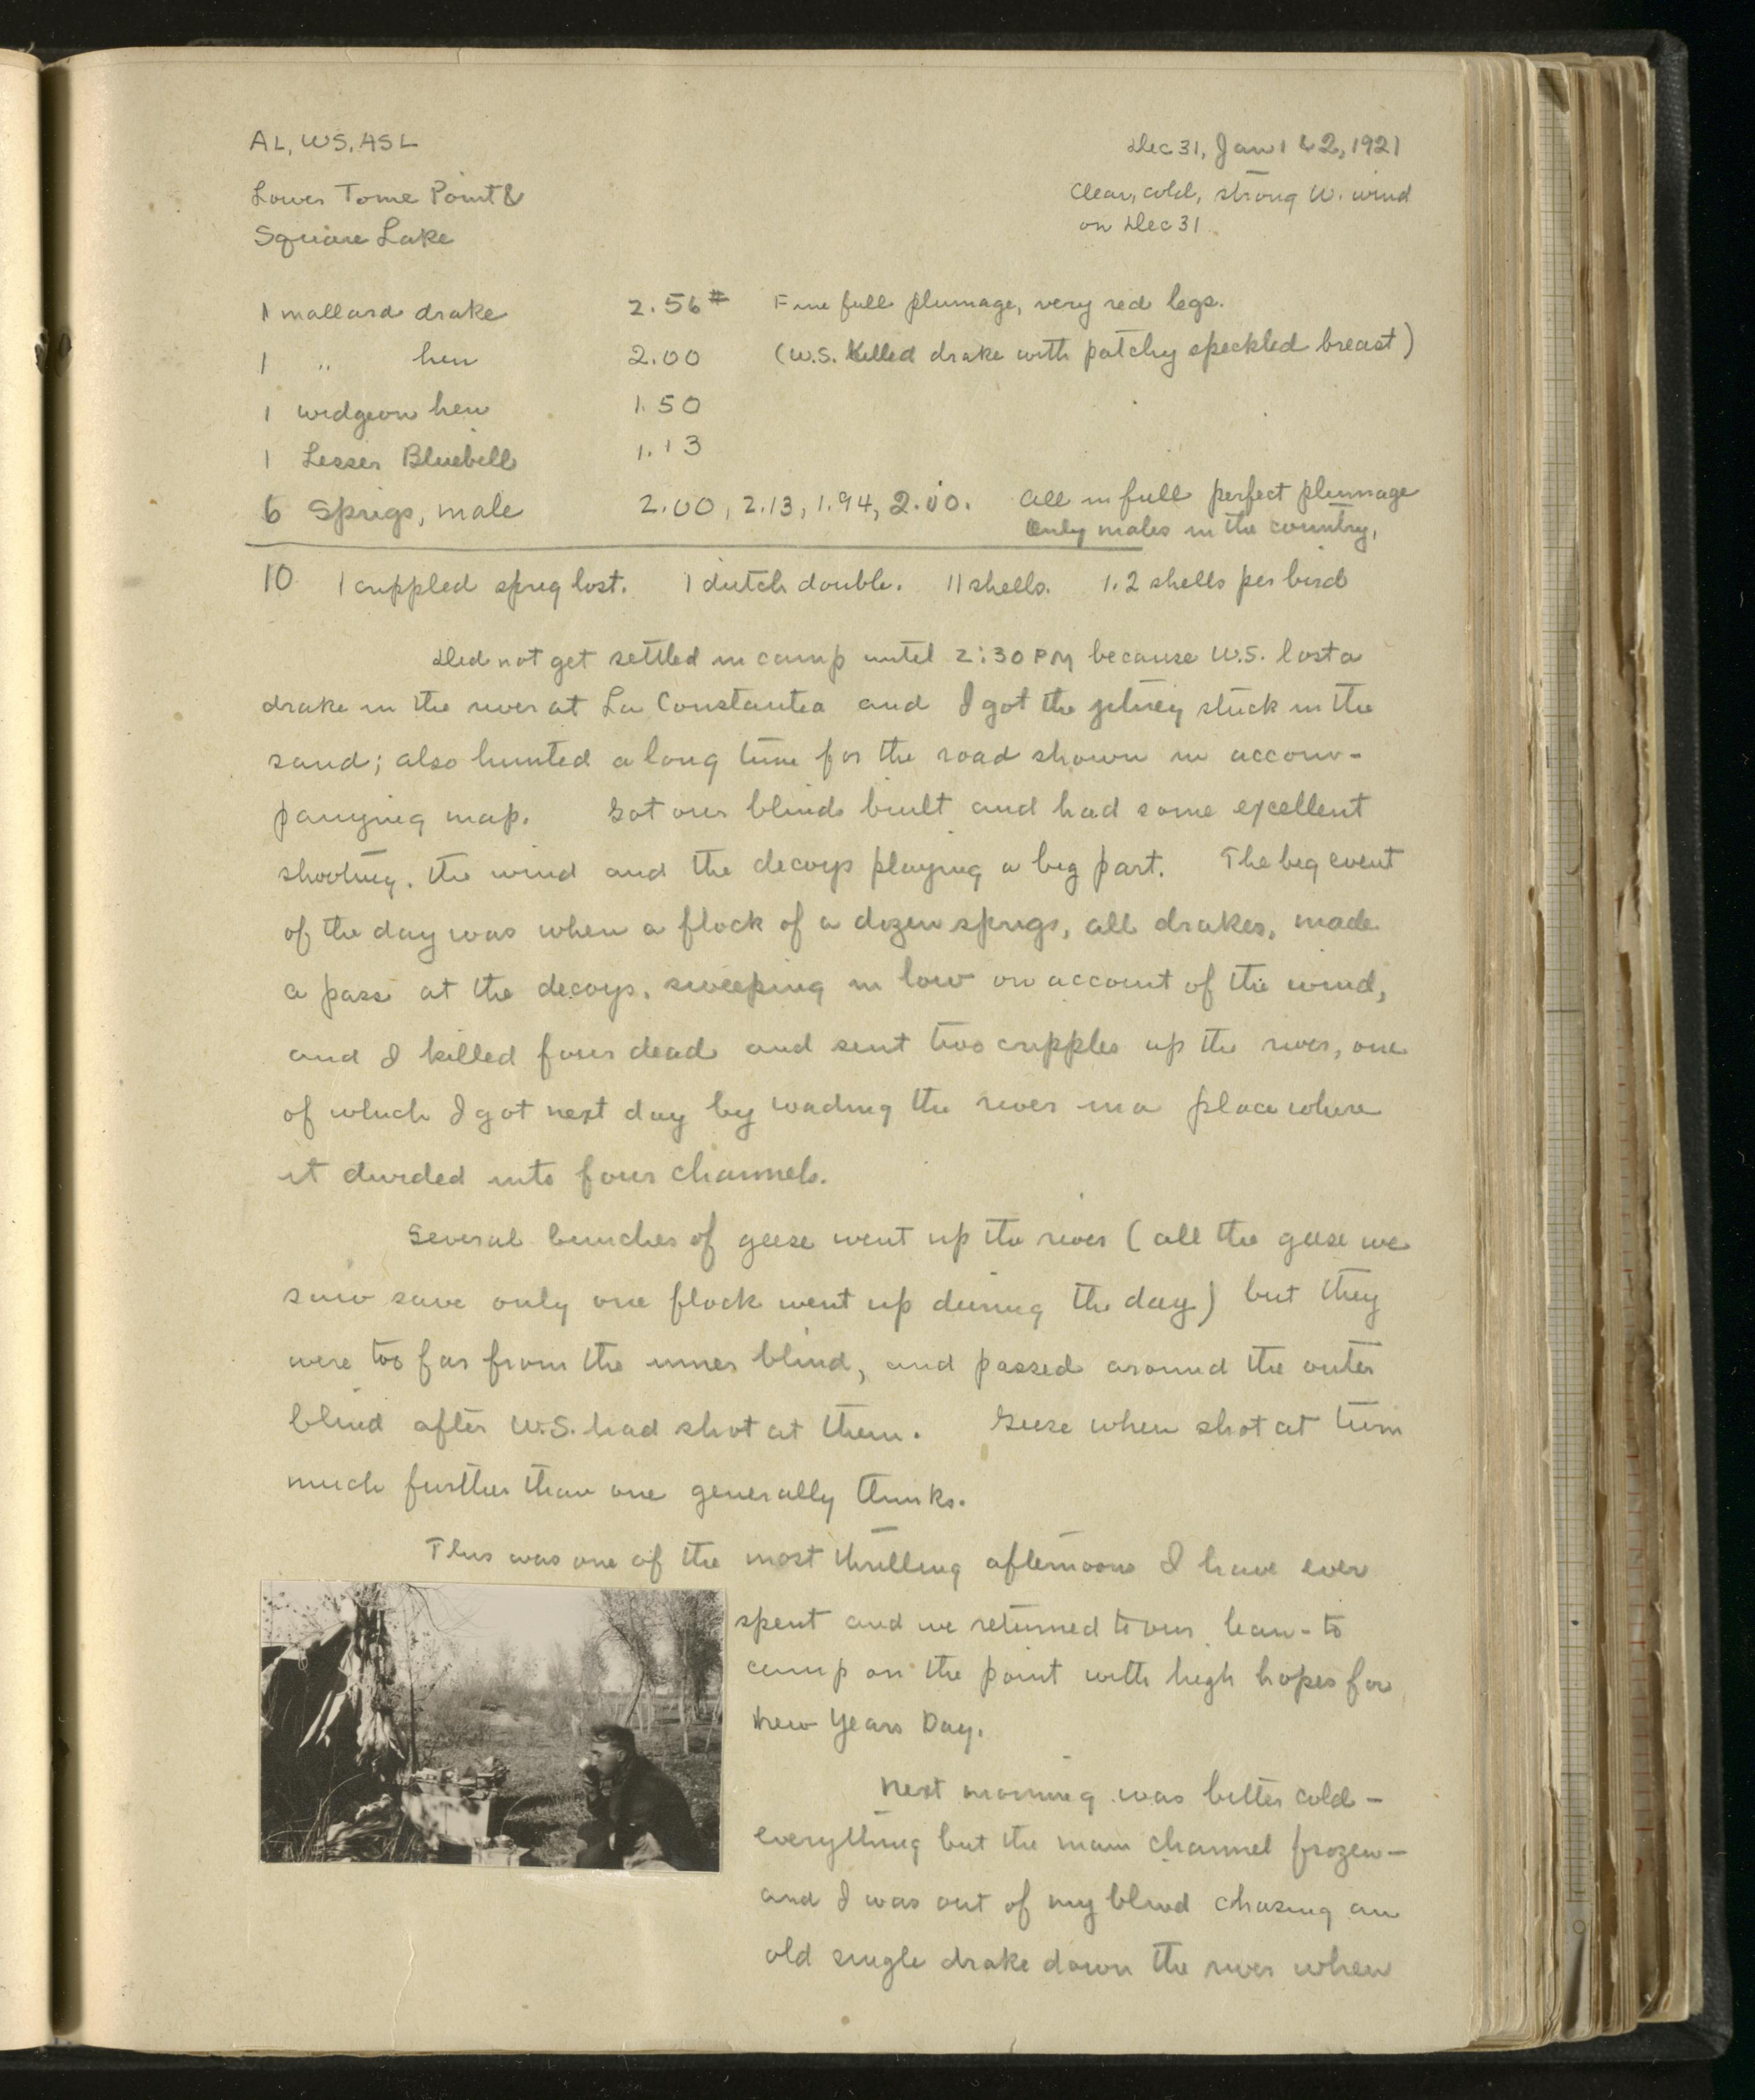 AL, WS, ASL
Dec 31, Jan 1 & 2, 1921
Lower Tome Point &
Square Lake
Clear, cold, strong W. wind
on Dec 31.
1 mallard drake 2.56# Fine full plumage, very red legs.
1 " hen 2.00 (W.S. killed drake with patchy speckled breast)
1 widgeon hen 1.50
1 Lesser Bluebill 1.13
6 Sprigs, male 2.00, 2.13, 1.94, 2.00. All in full perfect plumage
Only males in the country.
10 1 crippled sprig lost. 1 dutch double. 11 shells. 1.2 shells per bird
Did not get settled in camp until 2:30 PM because W.S. lost a
drake in the river at La Constantia and I got the jitney stuck in the
sand; also hunted a long time for the road shown in accom-
panying map. Got our blinds built and had some excellent
shooting, the wind and the decoys playing a big part. The big event
of the day was when a flock of a dozen sprigs, all drakes, made
a pass at the decoys, sweeping in low on account of the wind,
and I killed four dead and sent two cripples up the river, one
of which I got next day by wading the river in a place where
it divided into four channels.
Several bunches of geese went up the river (all the geese we
saw save only one flock went up during the day) but they
were too far from the inner blind, and passed around the outer
blind after W.S. had shot at them. Geese when shot at turn
much further than one generally thinks.
This was one of the most thrilling afternoons I have ever
spent and we returned to our lean-to
camp on the point with high hopes for
New Years Day.
Next morning was bitter cold -
everything but the main channel frozen -
and I was out of my blind chasing an
old single drake down the river when